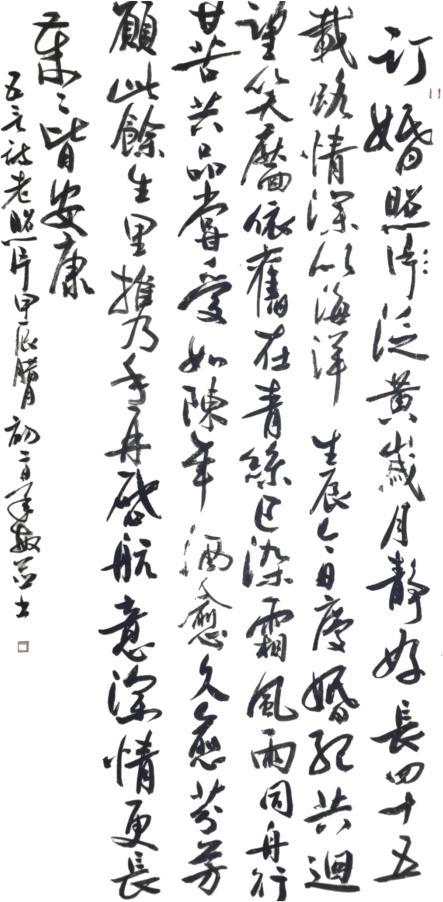 訂婚照片泛黃歲月靜好長四十五
載路情深似海洋生辰今日慶婚紀共迴
望笑靨依舊在青絲已染霜風雨同舟行
甘苦共品嘗愛如陳年酒愈久愈芬芳
願此餘生里攜手再啟航意深情更長
歲々皆安康
五言詩老照片甲辰臘月初二日